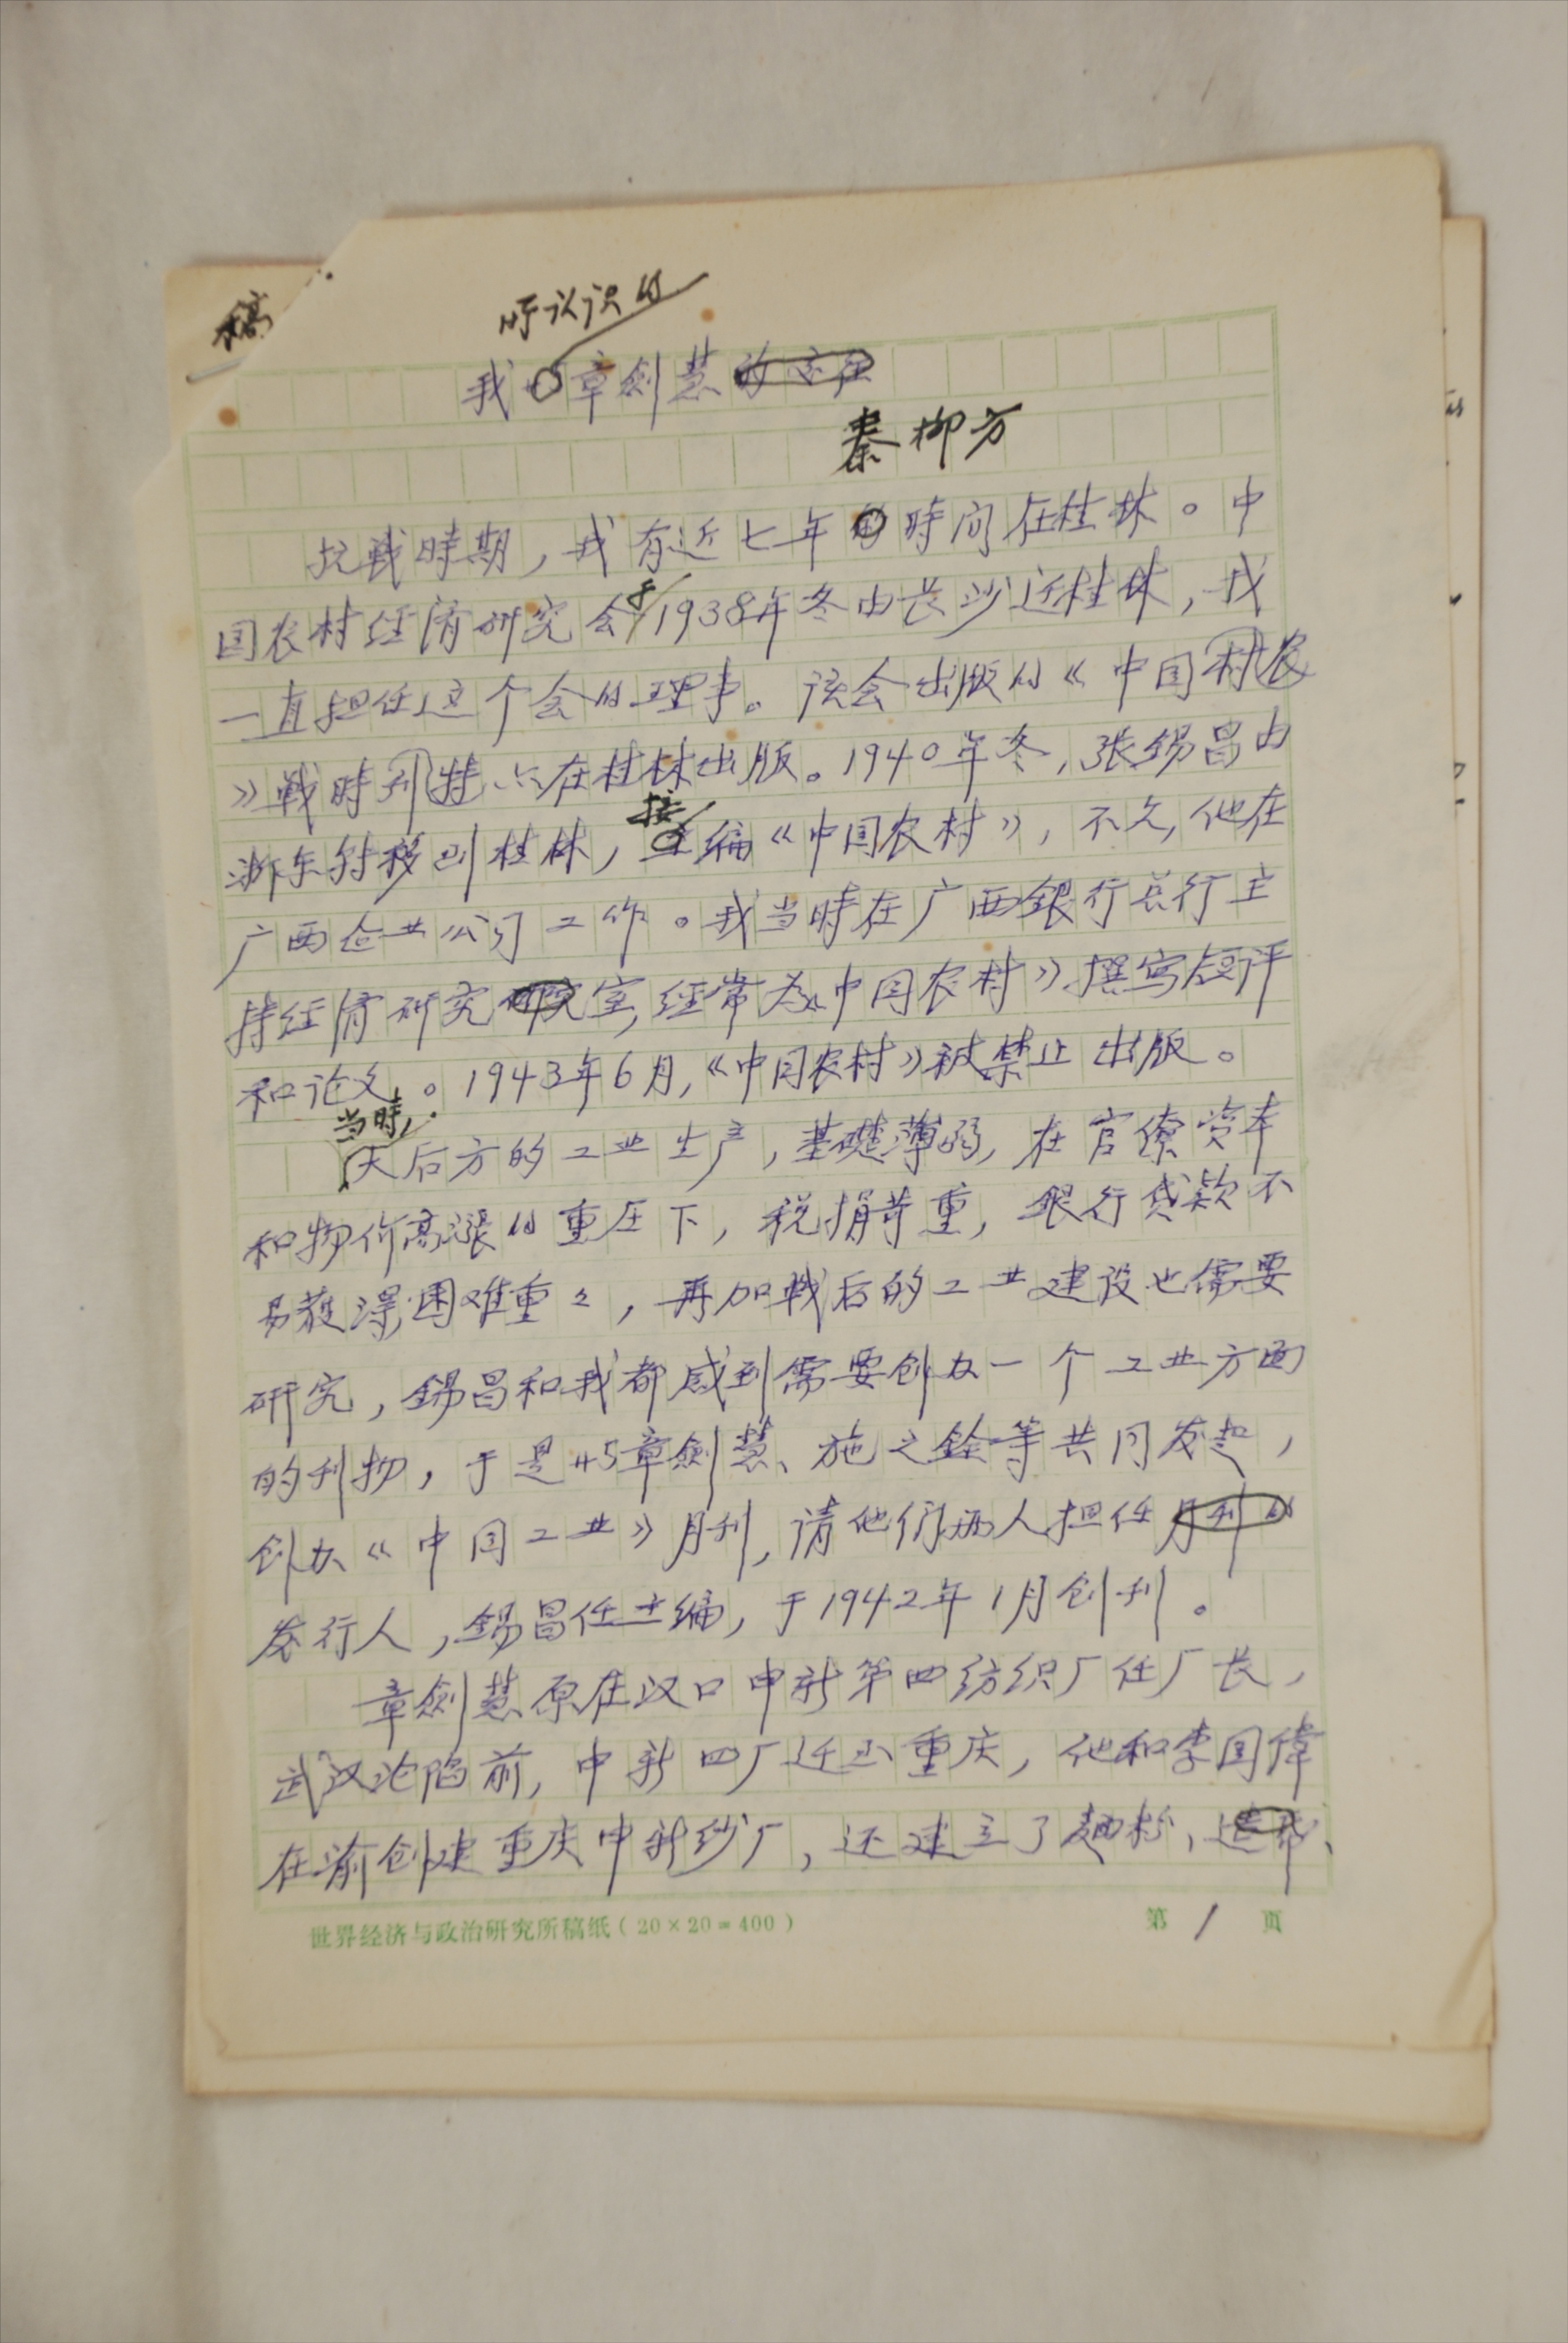 稿
所认识的
我与章剑慧的交往
秦柳方
抗戦時期，我有近七年的時间在桂林。中
国农村经济研究会于1938年冬由长沙迁桂林，我
一直担任这个会的理事。该会出版的《中国村农
》戦時刊特点在桂林出版。1940年冬，张锡昌由
接
浙东转移到桂林，主编《中国农村》，不久，他在
广西企业公司工作。我当時在广西銀行总行主
持经济研究室，经常为《中国农村》撰写短评
和论文。1943年6月，《中国农村》被禁止出版。
当時，
大后方的工业生产，基礎薄弱，在官僚资本
和物价高漲的重压下，税捐苛重，銀行贷款不
易获得，困难重々，再加戦后的工业建设也需要
研究，锡昌和我都感到需要创办一个工业方面
的刊物，于是与章剑慧、施之铨等共同发起，
创办《中国工业》月刊，请他们两人担任月刊的
发行人，锡昌任主编，于1942年1月创刊。
章剑慧原在汉口申新第四纺织厂任厂长，
武汉沦陷前，申新四厂迁到重庆，他和李国偉
在渝创建重庆申新纱厂，还建立了麺粉、造纸、
世界经济与政治研究所稿纸（20×20＝400）
第 1 页